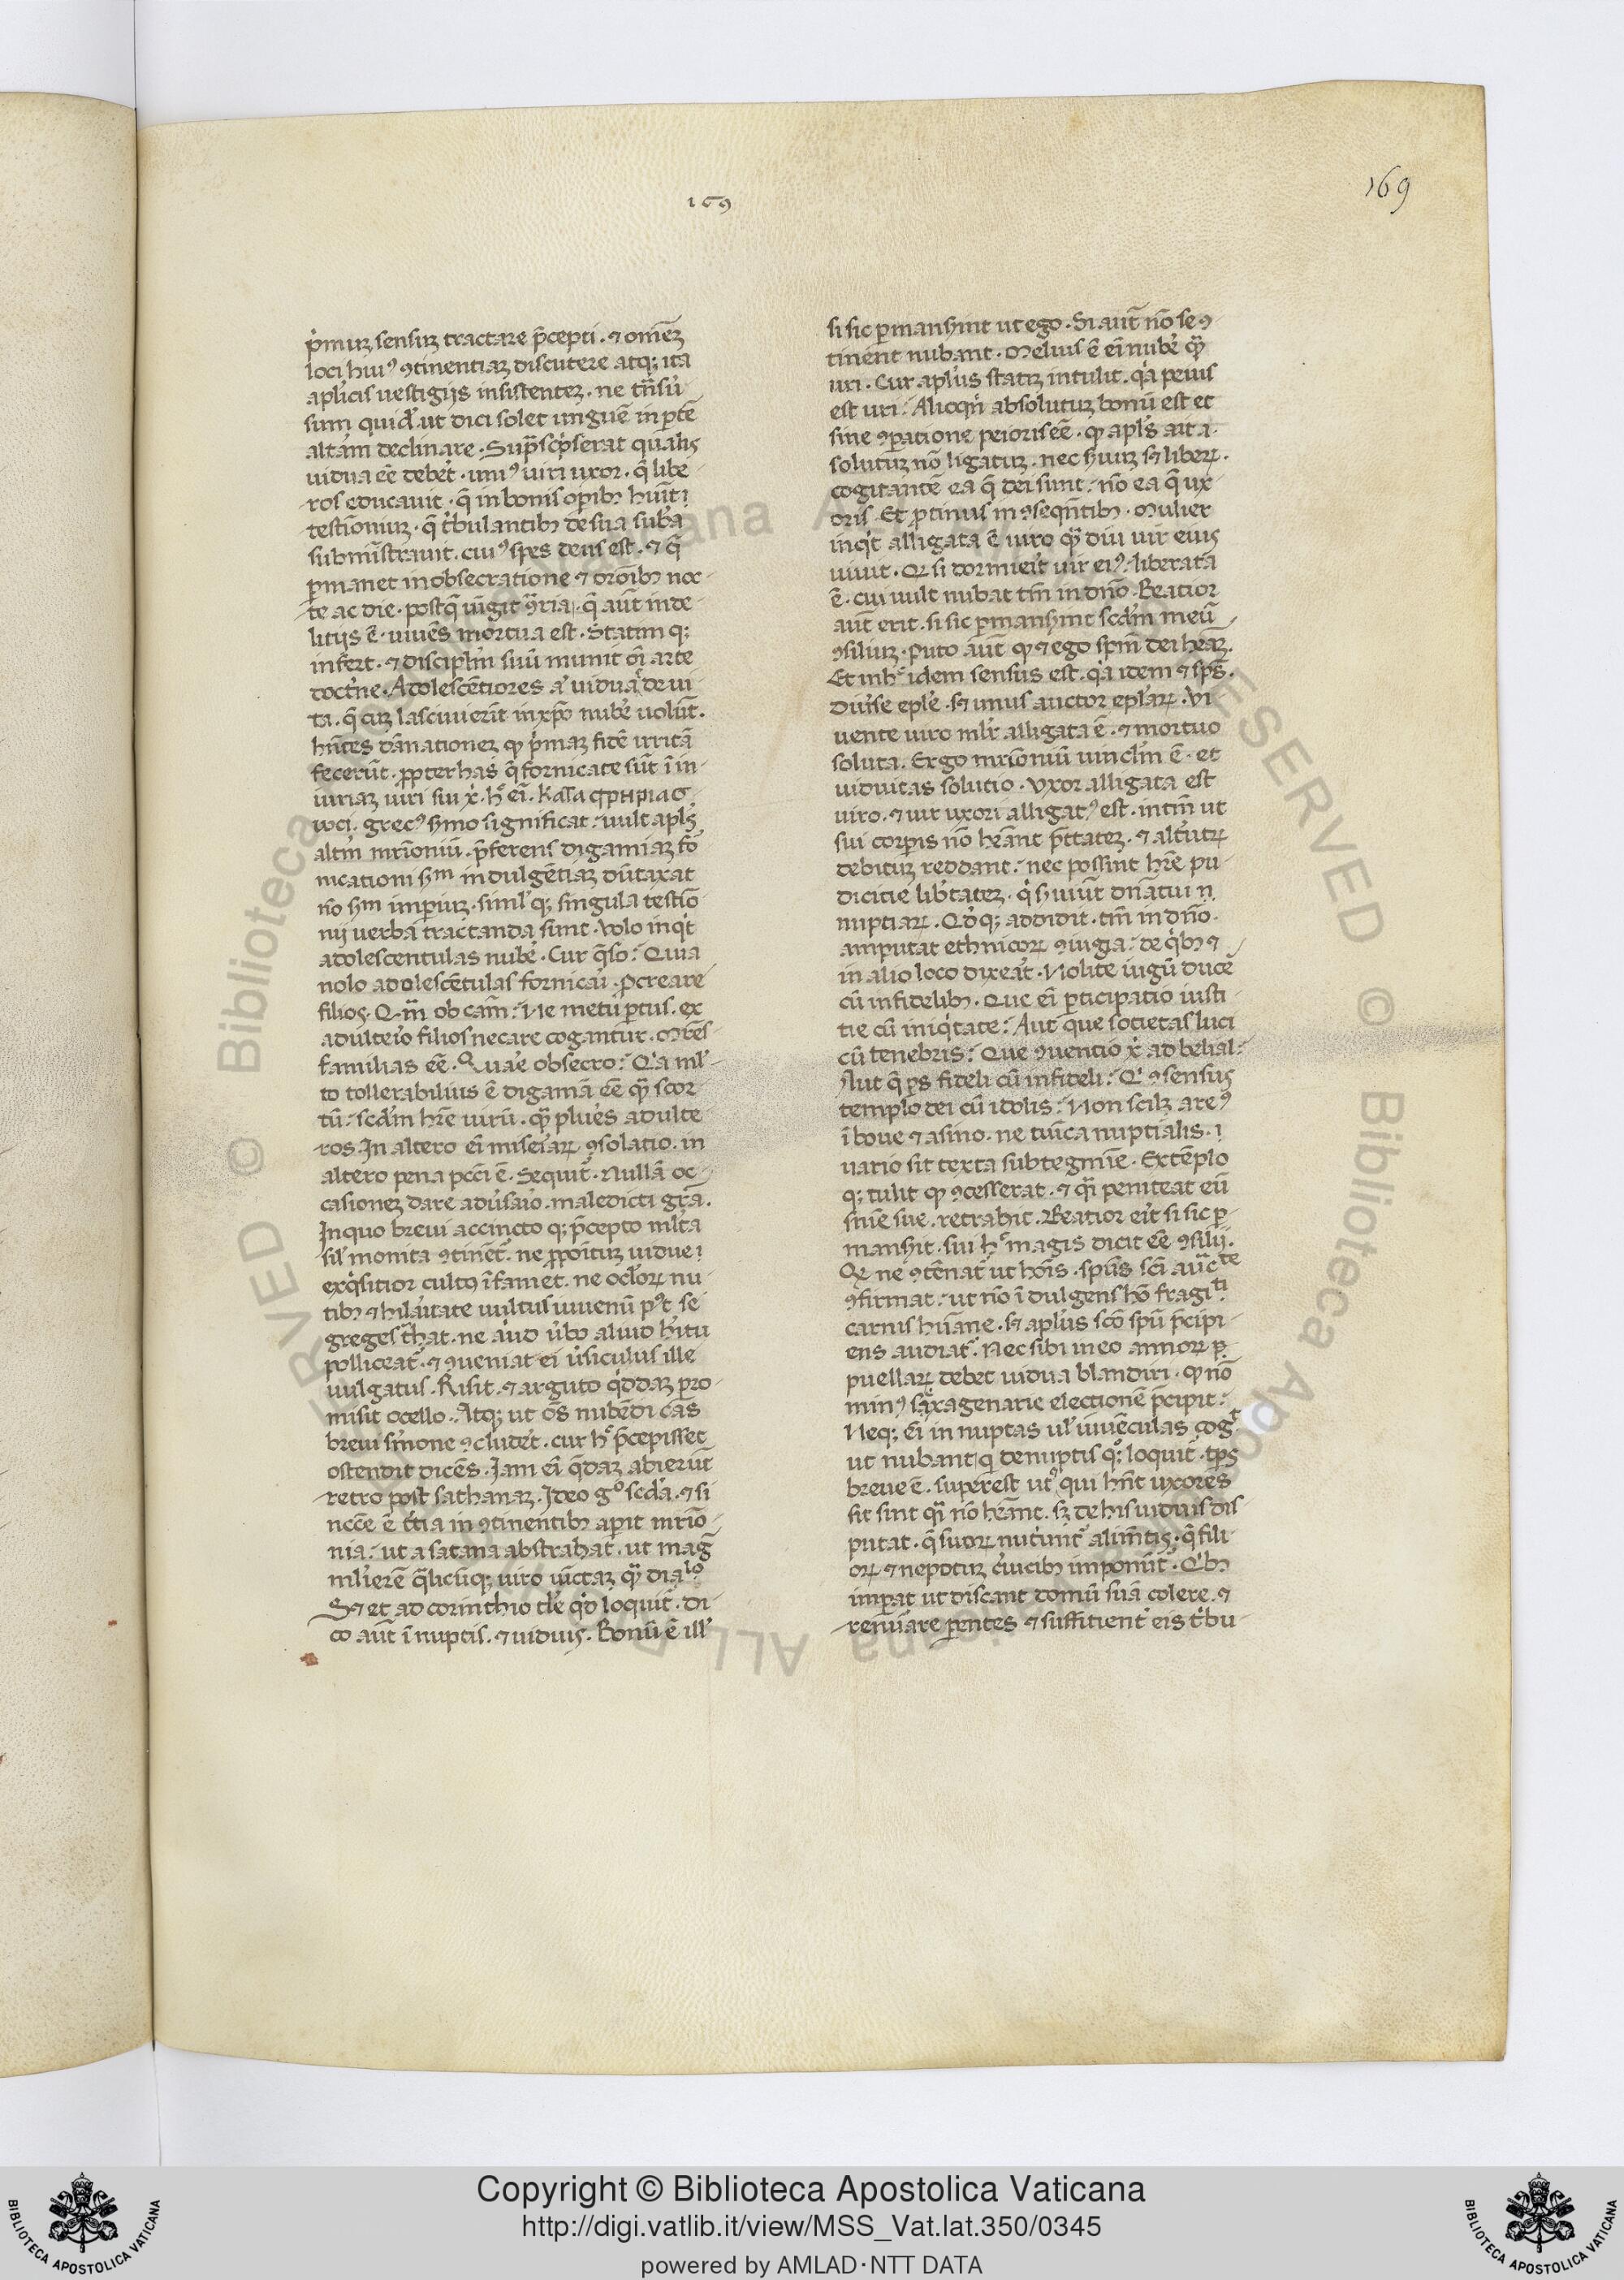 169
169
p̓muʒ sensuʒ tractare p̄cepti · ⁊ om̄eʒ
loci hui⁹ ꝯtinentiaʒ discutere atq; ita
apl̓icis uestigijs insistenteʒ · ne
sum quid̓ ut dici solet unguē in ꝑtē
alt̓am declinare · Sup̄ sc̓pserat qualis
uidua eē debet̓ · uni⁹ uiri uxor · q̄ libe
ros educauit · q̄ in bonis oꝑibꝫ hūit
testīoniuʒ · q̄ t̓bulantibꝫ de sua sub̓a
submīstrauit · cui⁹ spes deus est · ⁊ q̄
ꝑmanet in obsecratione ⁊ or̄oibꝫ noc
te ac die · q̄ aut̄ in de
litijs ē · uiuēs mortua est · Statim q;
infert · ⁊ discipl̓m suū munit oī arte
doct̓ne · Adolescētiores a̓ uiduas deui
ta · q̄ cuʒ lasciuierīt in xp̄o nub̓e uolūt ·
hn̄tes dānationeʒ ꝙ p̓maʒ fidē irritā
fecerūt · ꝓpter has q̄ fornicate sūt ī in
iuriaʒ uiri sui x̓ · h͛ eī ·
uoci · grec⁹ s̓mo significat · uult apl̓s
alt̓m mr̄ioniū · p̄ferens digamiaʒ fo
nicationi indulgētiaʒ dūtaxat
nō imꝑiuʒ · simul q; singula testīo
nij uerba tractanda sunt · Volo inq̓t
adolescentulas nub̓e · Cur q̄so · Quia
nolo adolescētulas fornicari · ꝓcreare
filios · Q·m̄ ob cām · Ne metu ꝑtus · ex
adulterio filios necare cogantur · mr̄es
familias eē · Quar̓e obsecro · Q̓a ml̓
to tollerabilius ē digamā eē q̄ꝫ scor
tū · sc̓dm hr̄e uirū · q̄ꝫ plures adulte
ros · In altero eī miser̓iaꝝ ꝯsolatio · in
altero pena pcc̄i ē · Sequit̓ · Nullā oc
casioneʒ dare adu̓sario · maledicti gr̄a ·
In quo breui accincto q; p̄cepto ml̓ta
sil̓ monita ꝯtinēt̓ · ne ꝓpoītuʒ uidue
exq̓sitior cultus īfamet · ne ocl̓oꝝ nu
tibꝫ ⁊ hilaritate uultus iuuenū post se
greges t̓hat · ne ali̓d u̓bo aliud h̓itu
polliceat̓ · ⁊ ꝯueniat ei u̓siculus ille
uulgatus · Risit · ⁊ arguto q̓ddaʒ ꝓ
misit ocello · Atq; ut oēs nubēdi cās
breui s̓mone ꝯclud̓et · cur h͛ p̄cepisset
ostendit dicēs · Jam eī q̄daʒ abierūt
retro post sathanaʒ · Ideo g͛ sc̓da · ⁊ si
necē ē t̓tia in ꝯtinentibꝫ aꝑit mr̄io
nia · ut a satana abstrahat · ut mag̓
ml̓ierē q̄licūq; uiro iūctaʒ q̄ꝫ dia
Sꝫ et ad corinthio q̓d loquit̓ · di
co aut̄ ī nuptis · ⁊ uiduis · Bonū ē ill̓
si sic ꝑmans̓int ut ego · Si aut̄ nō se ꝯ
tinent nubant · Melius ē eī nub̓e q̄ꝫ
uri · Cur apl̓us statiʒ intulit · q̓a peius
est uri · Alioq̓n absolutuʒ bonū est et
sine ꝯꝑatione peioris eē · ꝙ apl̓s ait
solutuʒ nō ligatuʒ · nec s̓uuʒ sꝫ libeꝝ ·
cogitantē ea q̄ dei sunt · nō ea q̄ ux
oris · Et ꝓtinus in ꝯseqn̄tibꝫ · Mulier
inq̓t alligata ē uiro q̄ꝫ diu uir eius
uiuit · Qꝫ si dormierit uir ei⁹ liberata
ē · cui uult nubat tm̄ in dn̄o · Beatior
aut̄ erit · si sic ꝑmans̓int sc̓dm meū
ꝯsiliuʒ · Puto aut̄ ꝙ ⁊ ego sp̄m dei hēaʒ ·
Et in h͛ idem sensus est · q̓a idem ⁊ sp̄s ·
Diu̓se epl̓e · sꝫ unus auctor epl̓aꝝ · Vi
uente uiro ml̓r alligata ē · ⁊ mortuo
soluta · Ergo mr̄ioniū uincl̓m ē · et
uiduitas solutio · Vxor alligata est
uiro · ⁊ uir uxori alligat⁹ est · intm̄ ut
sui corꝑis nō hēant p̄tateʒ · ⁊ alt̓utꝝ
debituʒ reddant · nec possint hr̄e pu
dicitie lib̓tateʒ · q̓ s̓uiūt dn̄atui
nuptiaꝝ · Qd̓q; addidit · tm̄ in dn̄o ·
amputat ethnicoꝝ ꝯiugia · de q̓bꝫ ⁊
in alio loco dixerat · Nolite iugū duc̓e
cū infidelibꝫ · Que eī ꝑticipatio iusti
tie cū iniq̓tate · Aut que societas luci
cū tenebris · Que ꝯuentio x̓ ad belial ·
Aut q̄ ꝑs fideli cū infideli · Q̓ ꝯsensus
templo dei cū idolis · Non scilʒ are⁹
ī boue ⁊ asino · ne tunica nuptialis ·
uario sit texta subtegmīe · Extēplo
q; tulit ꝙ ꝯcesserat · ⁊ q̄i peniteat eū
snīe sue · retrahit · Beatior erit si sic ꝑ
mans̓it · sui h͛ magis dicit eē ꝯsilij ·
Qꝫ ne ꝯtēnat̓ ut hoīs · sp̄us sc̄i auc̄te
ꝯfirmat · ut nō ī dulgens hō fragi
carnis hūane · sꝫ apl̓us sc̄o sp̄u p̄cipi
ens audiat̓ · Nec sibi in eo annoꝝ
puellaꝝ debet uidua blandiri · ꝙ nō
min⁹ sexagenarie electionē p̄cipit ·
Neq; eī in nuptas ul̓ iuuēculas cog̓
ut nubant de nuptis q; loquit̓ · tꝑs
breue ē · superest ut qui hn̄t uxores
sit sint q̄i nō hēant · sꝫ de his uiduis dis
putat · q̄ suoꝝ nut̓unt̓ alimētis · q̄ fili
oꝝ ⁊ nepotuʒ c̓uicibꝫ imponūt̓ · Q̓bꝫ
imꝑat ut discant domū suā colere · ⁊
remūare ꝑentes ⁊ suffitient eis t̓bu
Copyright © Biblioteca Apostolica Vaticana
http://digi.vatlib.it/view/MSS_Vat.lat.350/0345
powered by AMLAD·NTT DATA